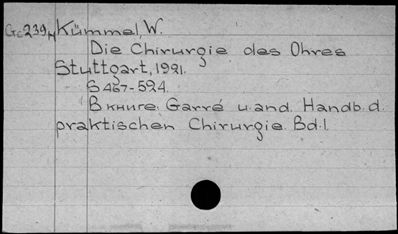 Gc239н Kümmel, W.
Die Chirurgie des Ohres
Stuttgart, 1921.
S 467-524.
В книге: Garré u. and. Handb. d.
praktischen Chirurgie. Bd. I.